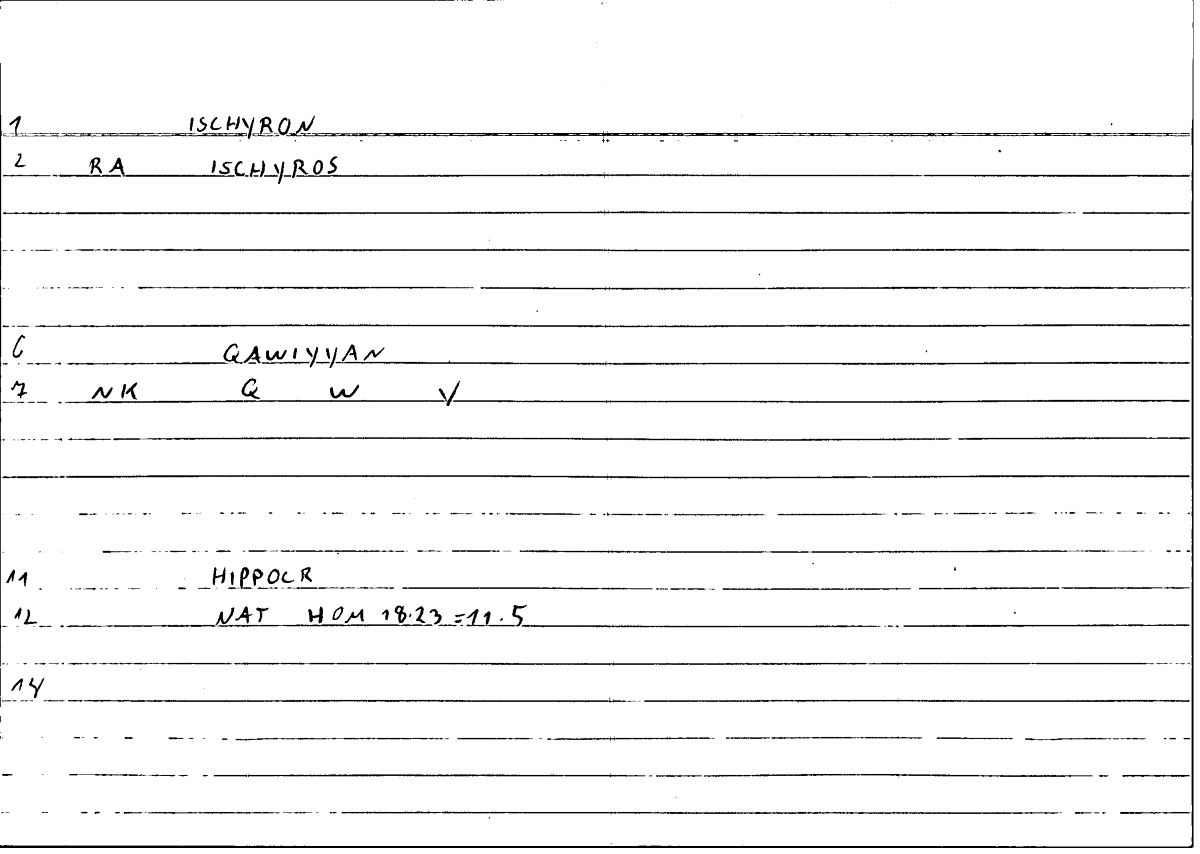 1 ISCHYRON
2 RA ISCHYROS
6 QAWIYYAN
7 NK Q W Y
11 HIPPOCR
12 NAT HOM 18.23=11.5
14